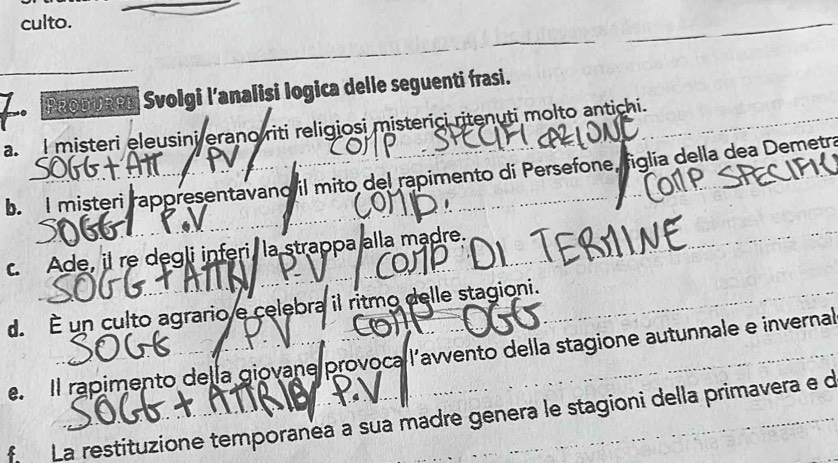 culto.
7. PRODURRE Svolgi l'analisi logica delle seguenti frasi.
a. I misteri eleusini/erano/riti religiosi misterici ritenuti molto antichi.
SOGG + ATT / PV / COMP SPECIFICAZIONE
b. I misteri rappresentavano/il mito del rapimento di Persefone, figlia della dea Demetra
SOGG / P.V / COMP. / COMP SPECIFIC
c. Ade, il re degli inferi/ la strappa/alla madre.
SOGG + ATTRI / P.V / COMP DI TERMINE
d. È un culto agrario/e celebra/il ritmo delle stagioni.
SOGG / PV / COMP OGG
e. Il rapimento della giovane/provoca/l'avvento della stagione autunnale e invernal
SOGG + ATTRIB / P.V
f. La restituzione temporanea a sua madre genera le stagioni della primavera e d